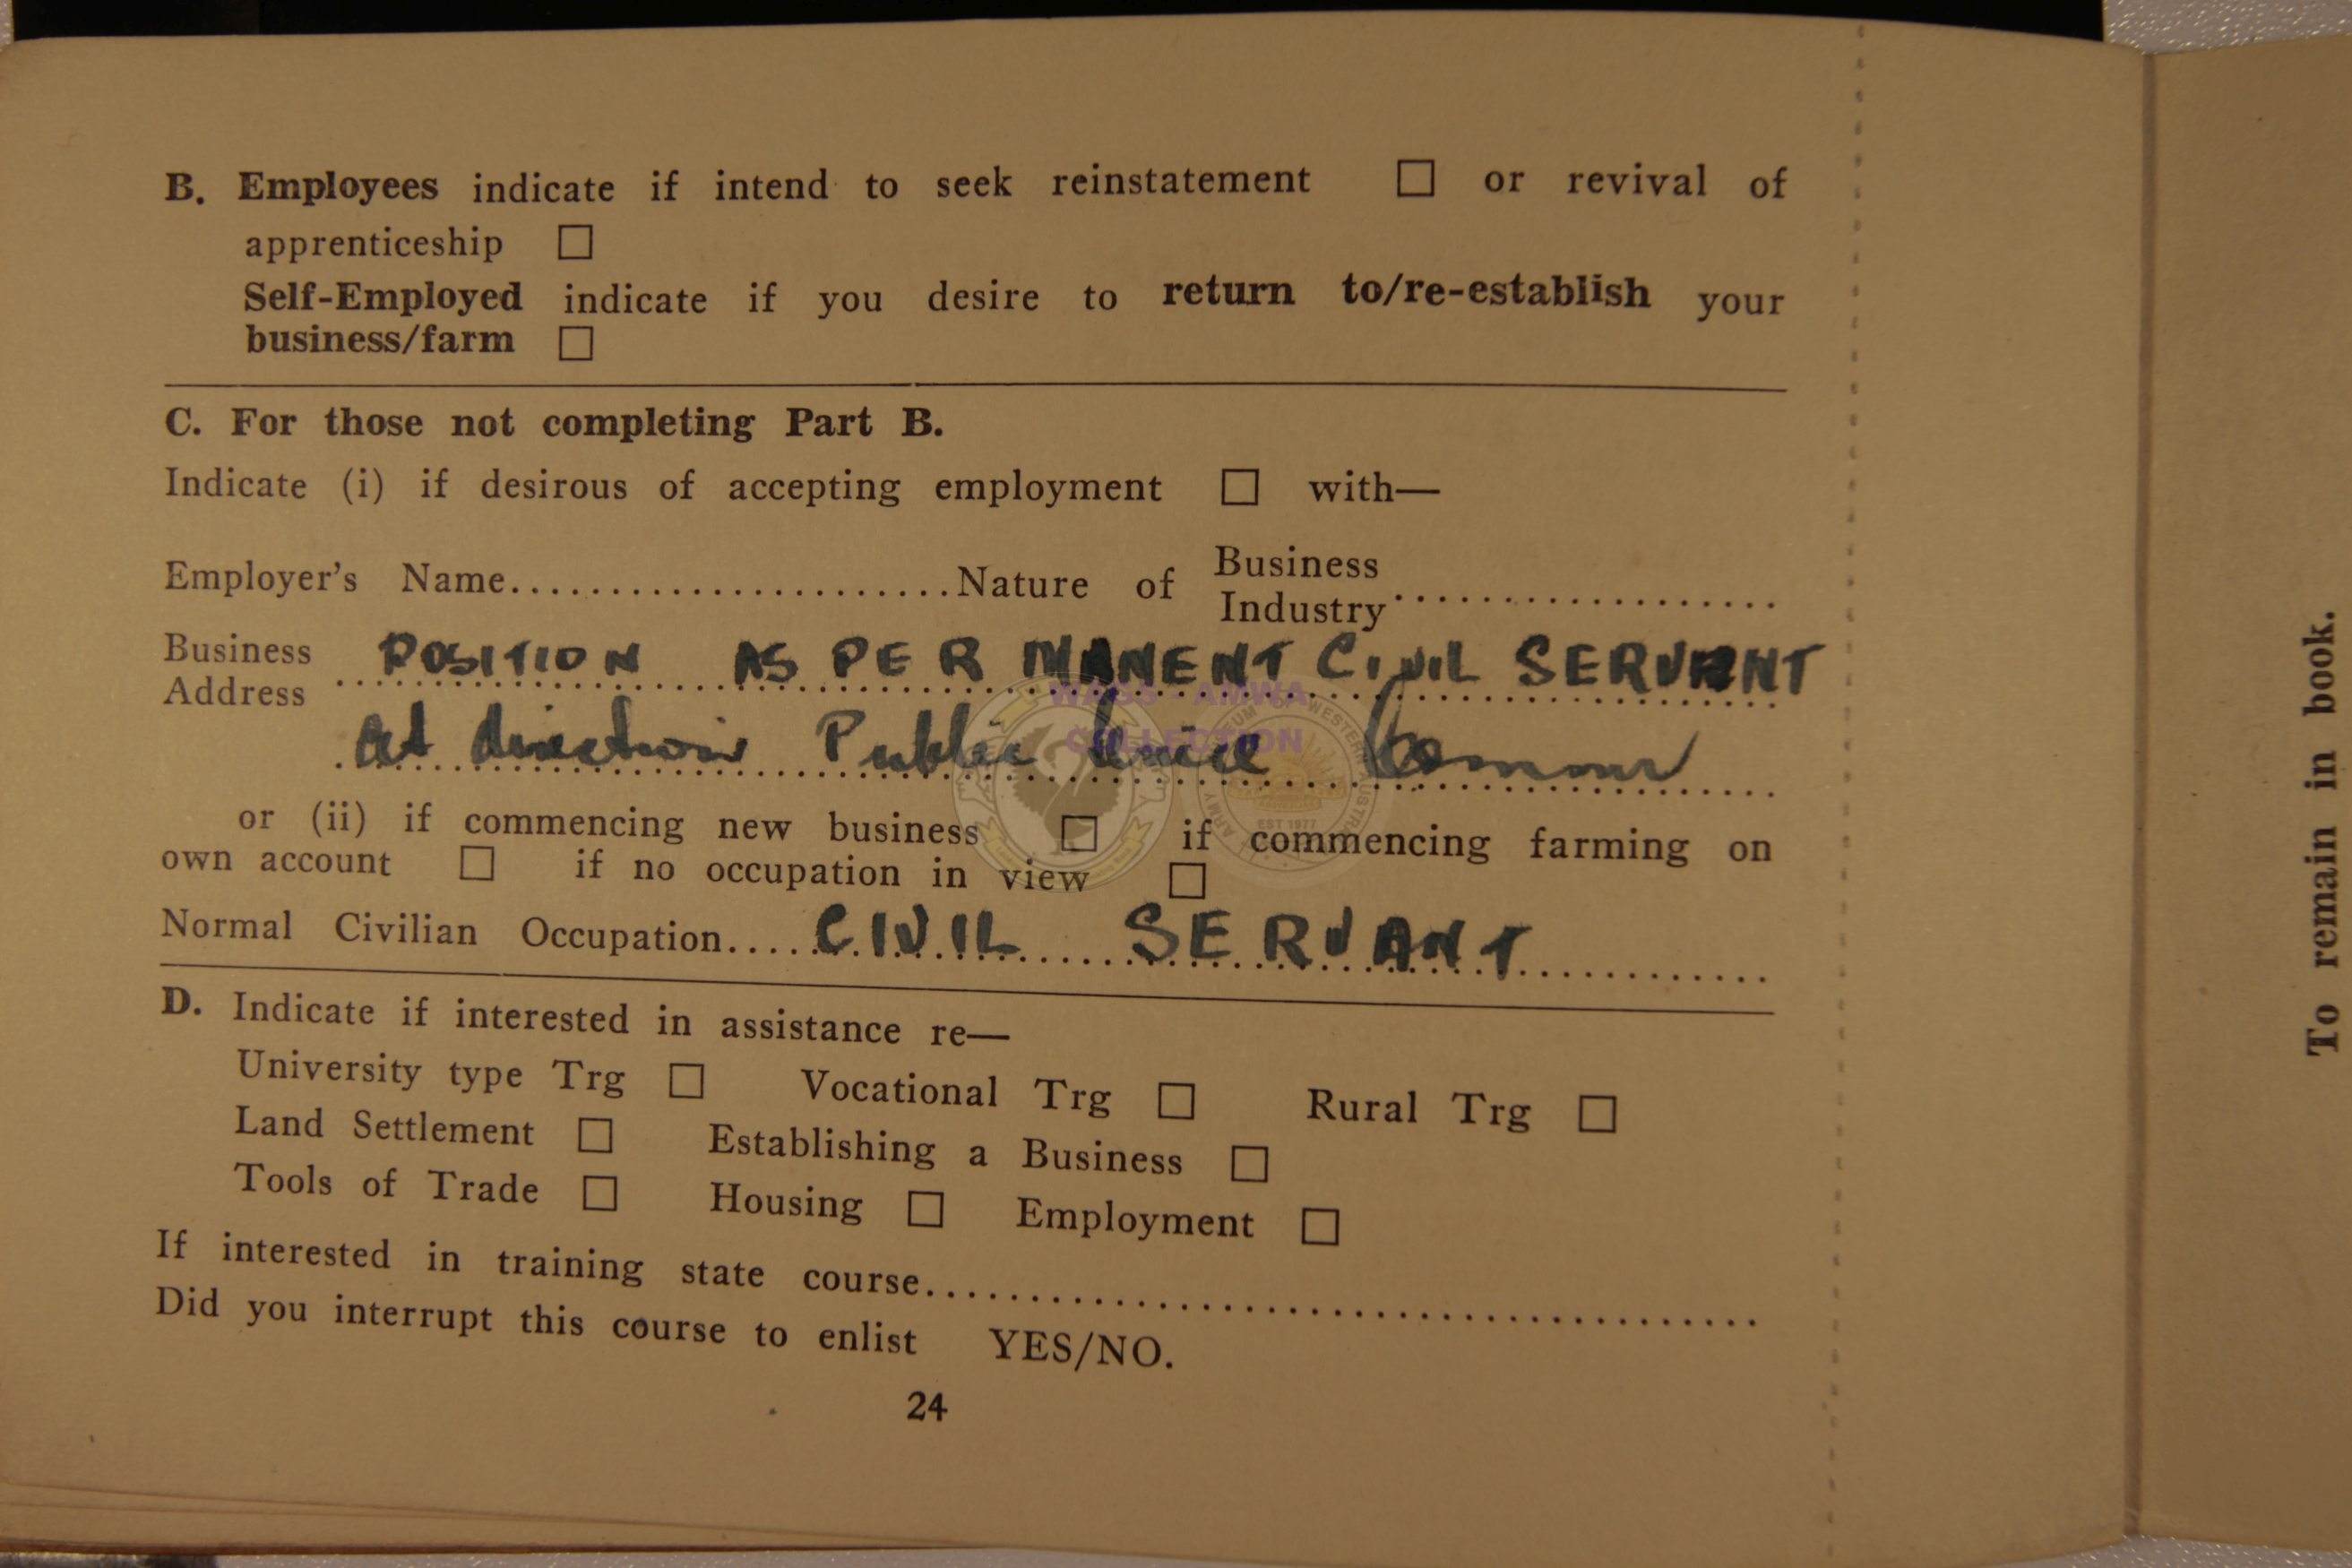 B. Employees indicate if intend to seek reinstatement □ or revival of
apprenticeship □
Self-Employed indicate if you desire to return to/re-establish your
business/farm □
C. For those not completing Part B.
Indicate (i) if desirous of accepting employment □ with—
Employer's Name........................Nature of Business
Industry...................
Business
Address POSITION AS PERMANENT CIVIL SERVANT
At direction Public Service
or (ii) if commencing new business □ if commencing farming on
own account □ if no occupation in view □
Normal Civilian Occupation....CIVIL SERVANT
D. Indicate if interested in assistance re—
University type Trg □ Vocational Trg □ Rural Trg □
Land Settlement □ Establishing a Business □
Tools of Trade □ Housing □ Employment □
If interested in training state course..........................................
Did you interrupt this course to enlist YES/NO.
24
To remain in book.
WAGS - AMWA
COLLECTION
EST 1977